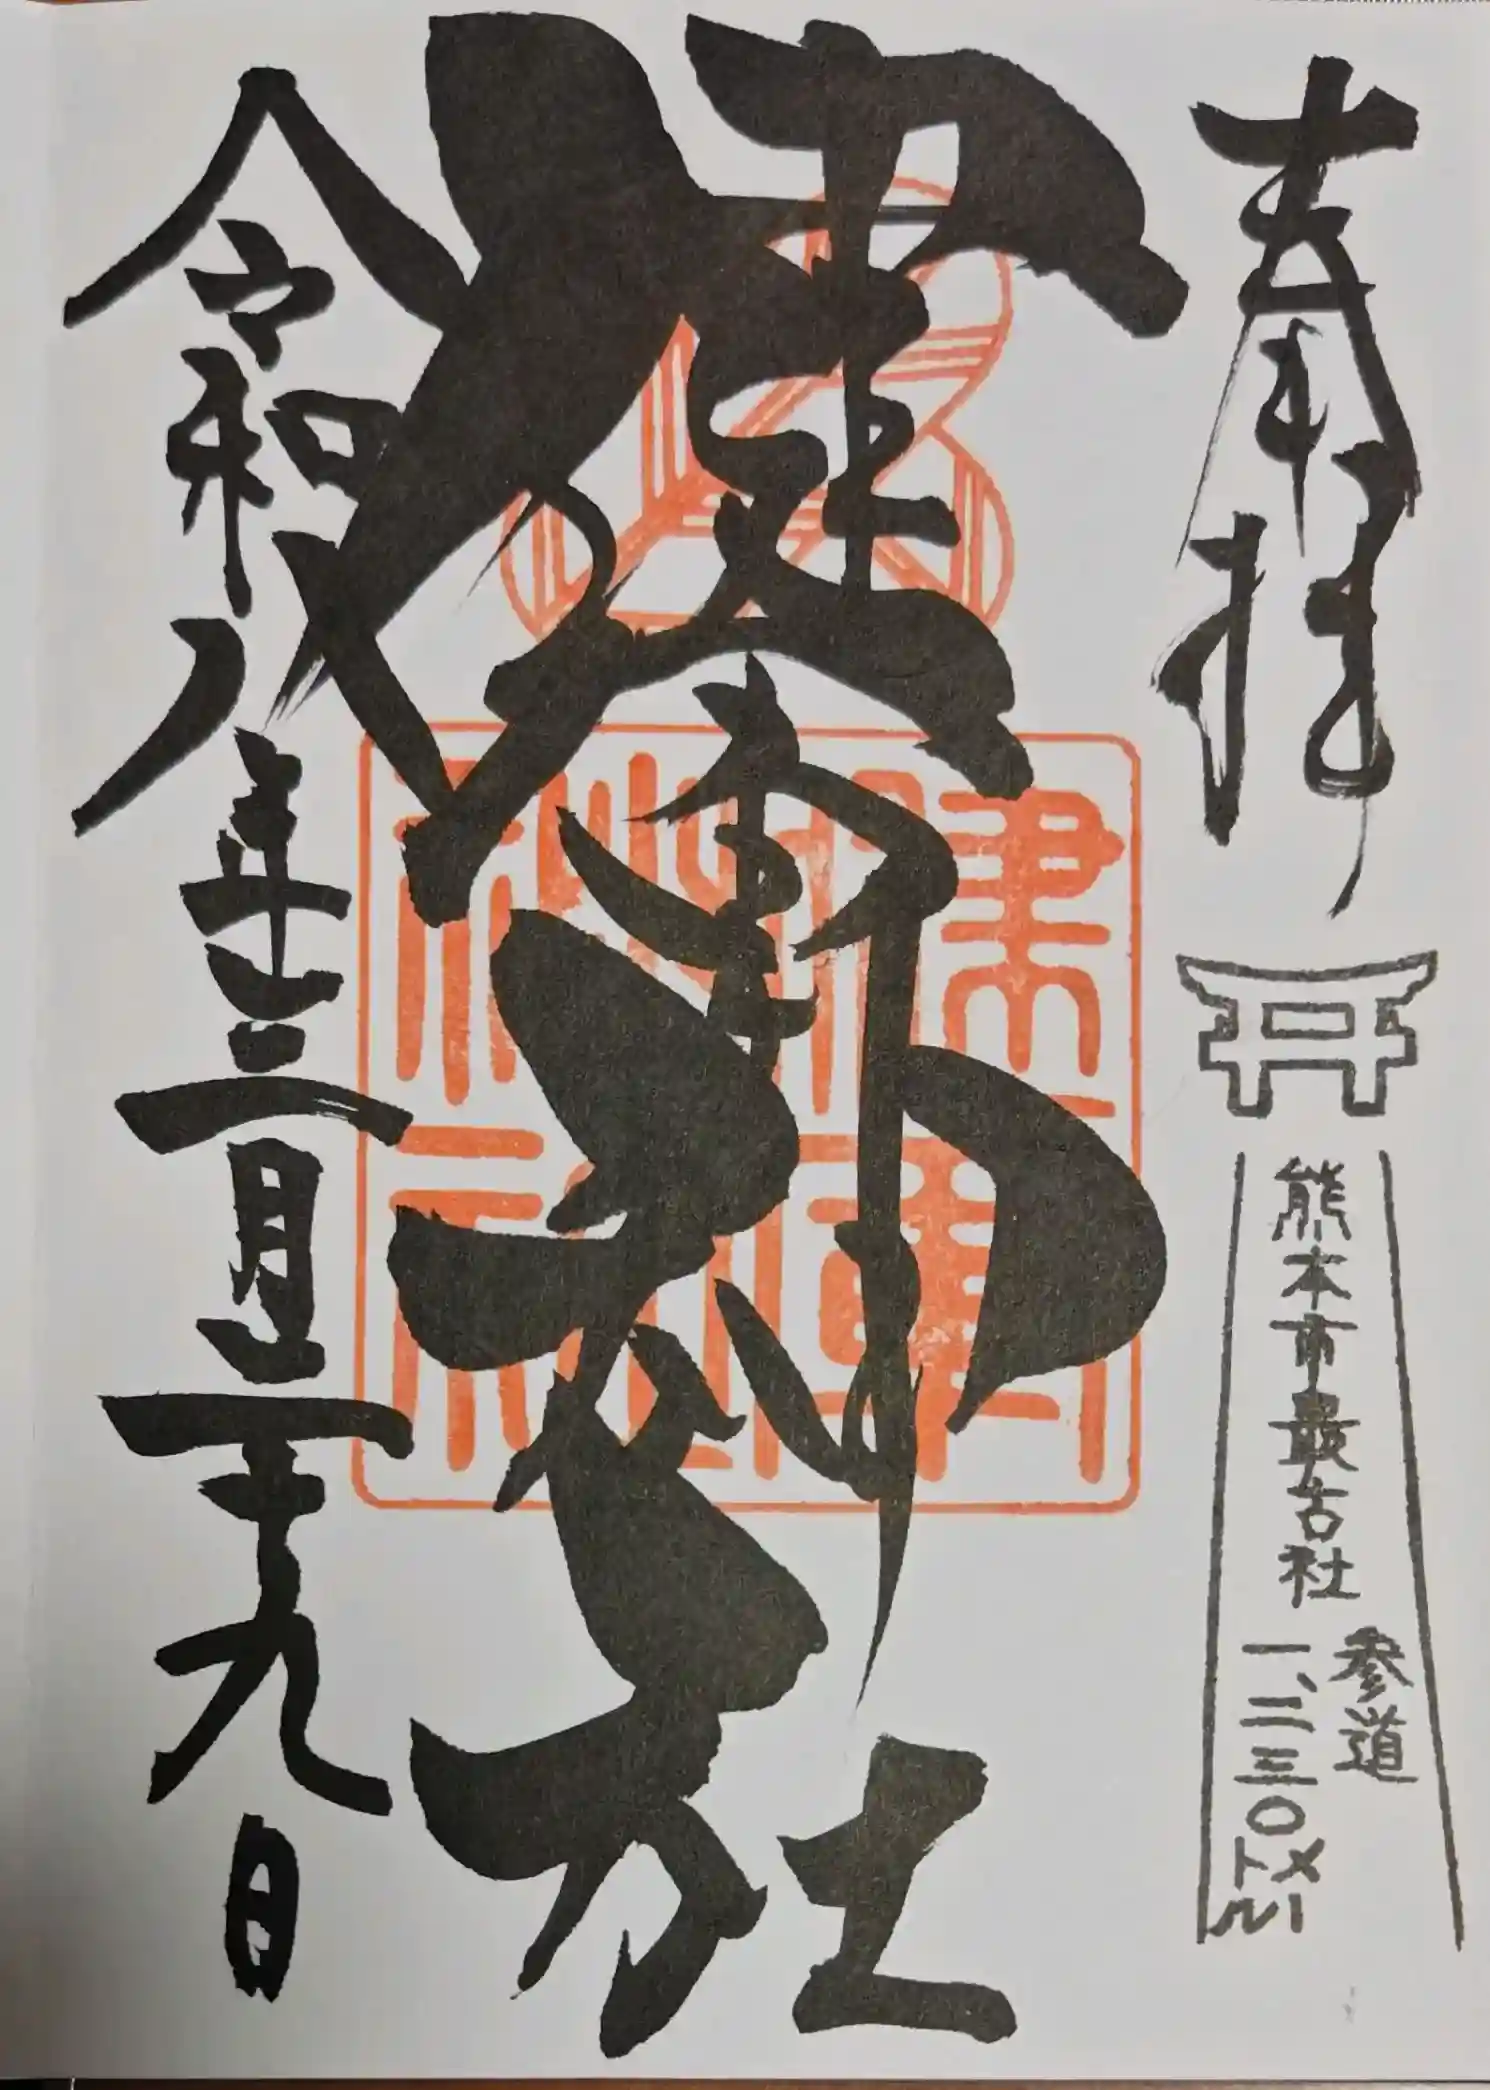 奉拝
熊本市最古社
参道
一、二三〇メートル
健軍神社
健軍神社
令和八年三月二十九日